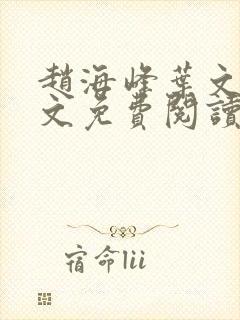 趙海峰葉文
文免費閱讀
宿命lii